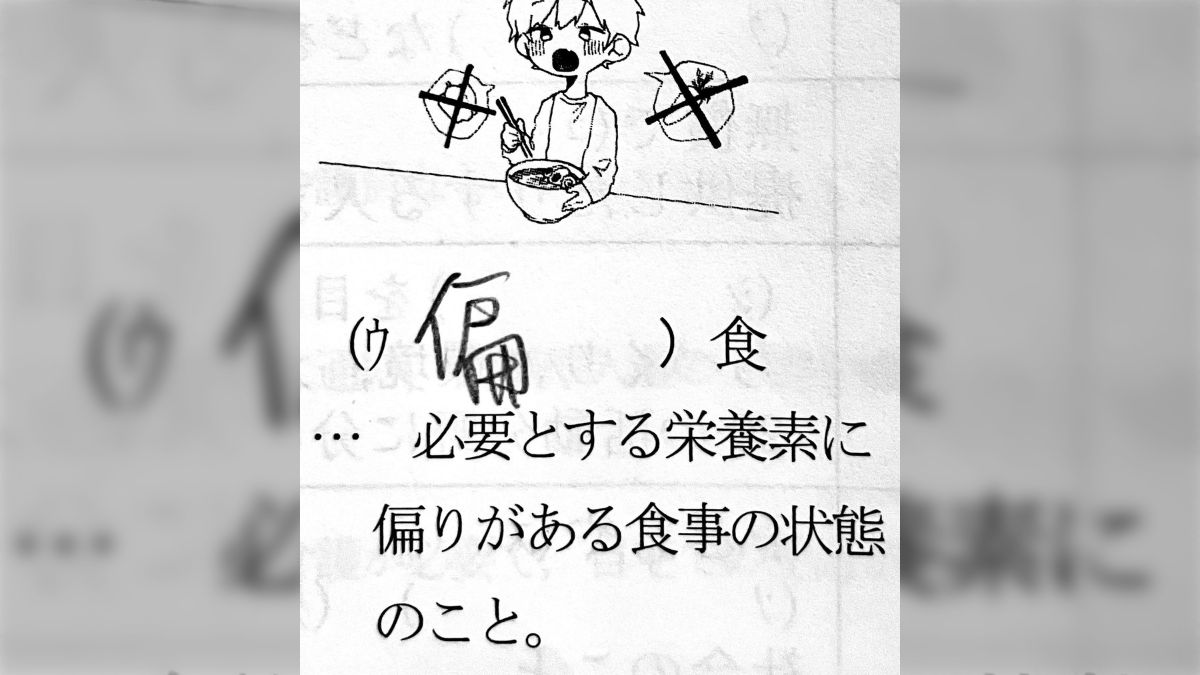 (ウ 偏 ) 食
… 必要とする栄養素に
偏りがある食事の状態
のこと。